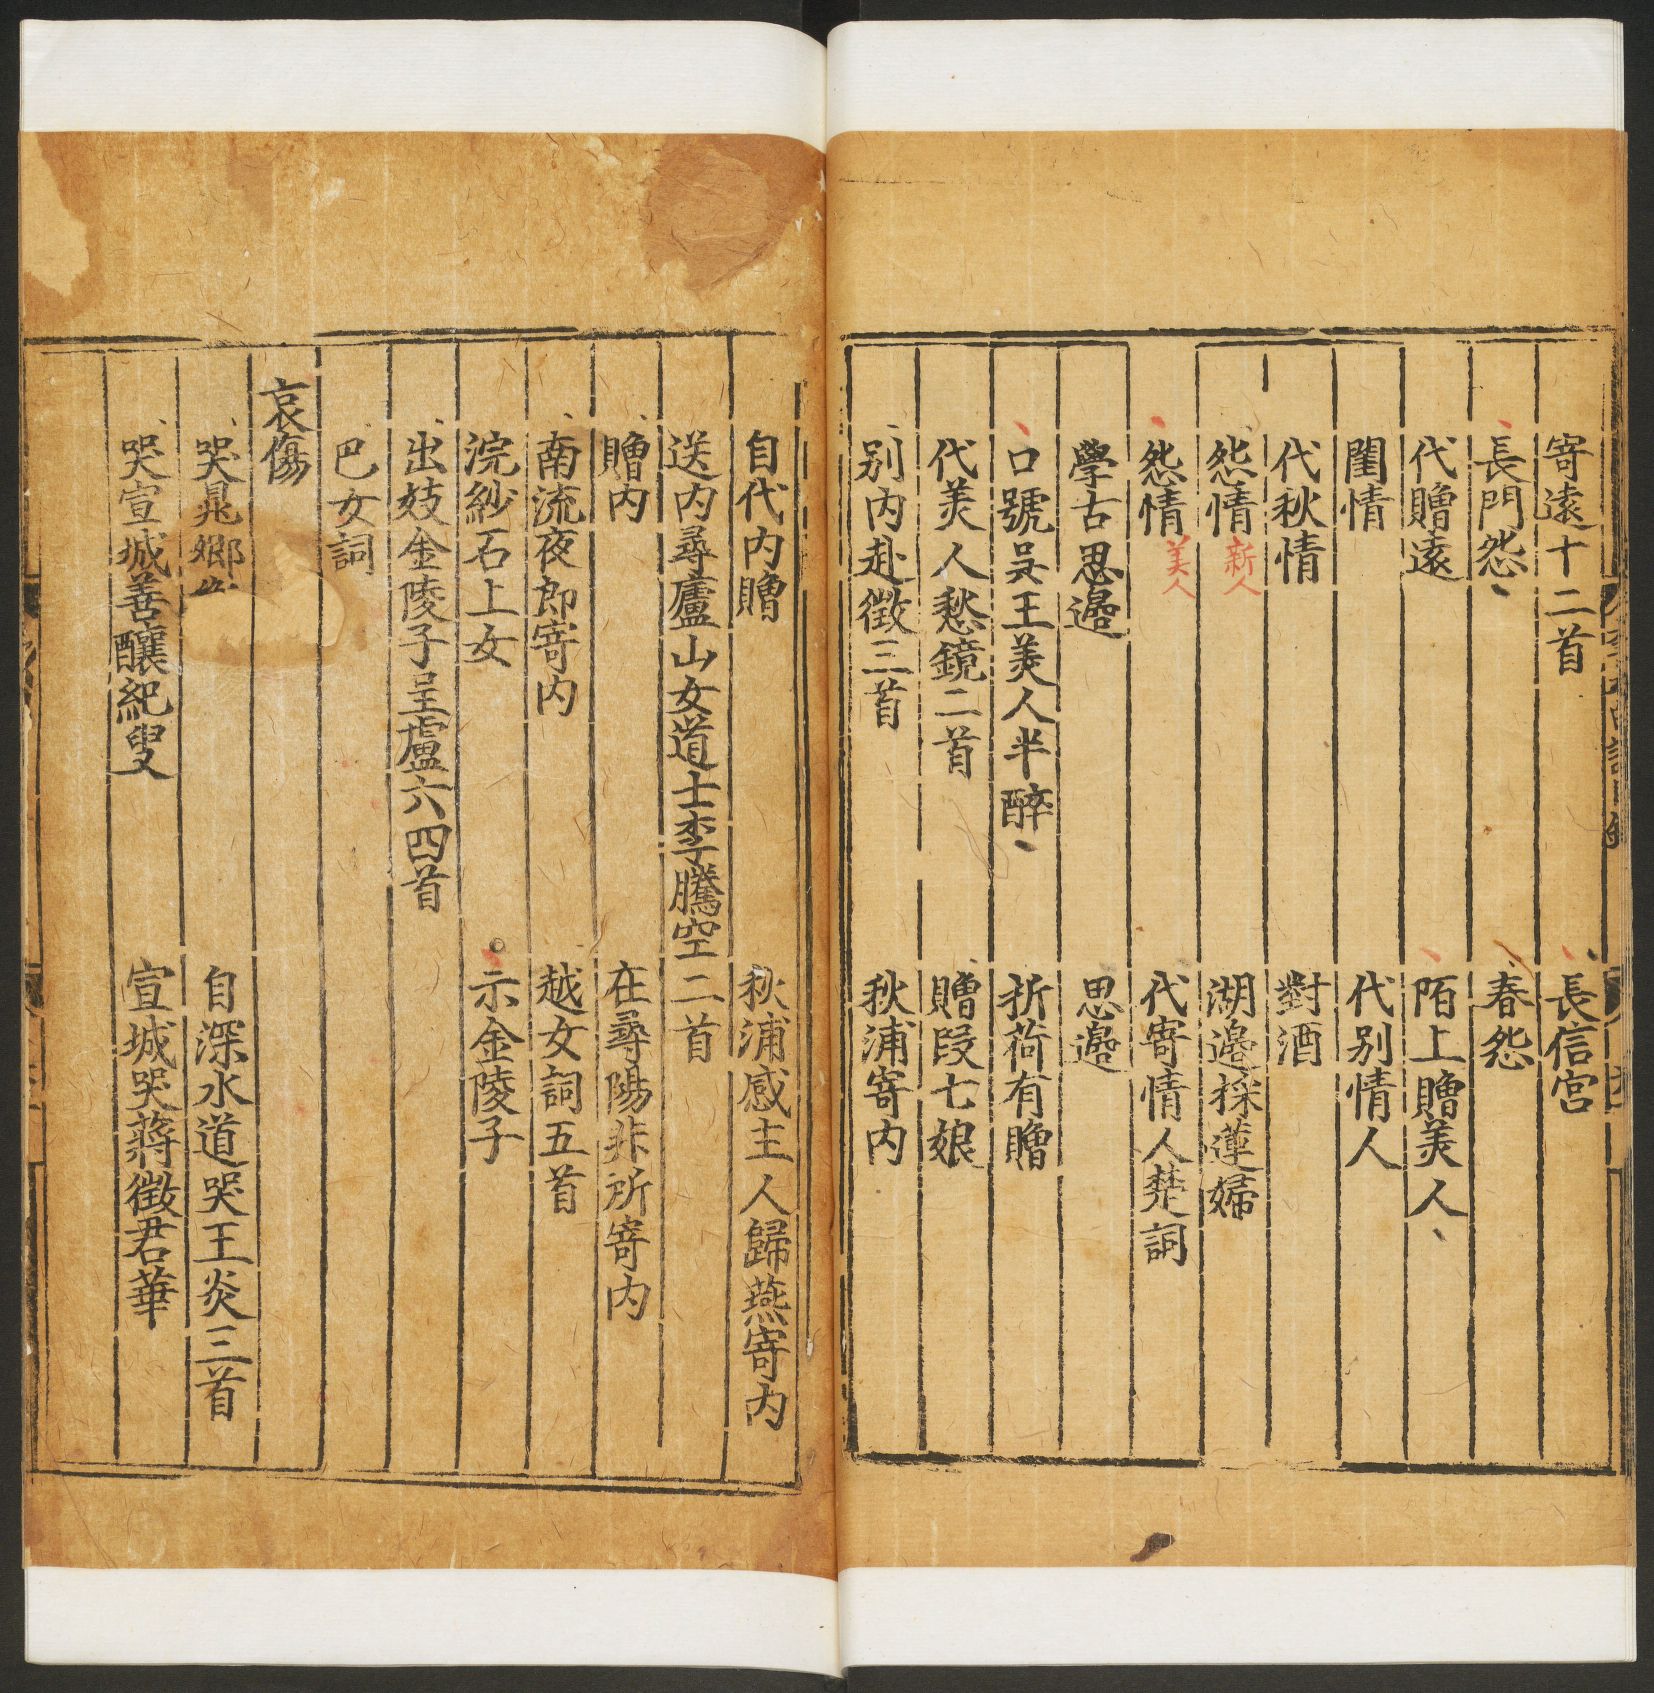 寄遠十二首　長信宮
長門怨　春怨
代贈遠　陌上贈美人
閨情　代别情人
代秋情　對酒
怨情 新人　湖邊採蓮婦
怨情 美人　代寄情人楚詞
學古思邉　思邉
口號吳王美人半醉　折荷有贈
代美人愁鏡二首　贈段七娘
别内赴徴三首　秋浦寄内
自代内贈　秋浦感主人歸燕寄内
送内尋廬山女道士李騰空二首
贈内　在尋陽非所寄内
南流夜郎寄内　越女詞五首
浣紗石上女　示金陵子
出妓金陵子呈盧六四首
巴女詞
哀傷
哭晁卿　自溧水道哭王炎三首
哭宣城善釀紀叟　宣城哭蔣徴君華